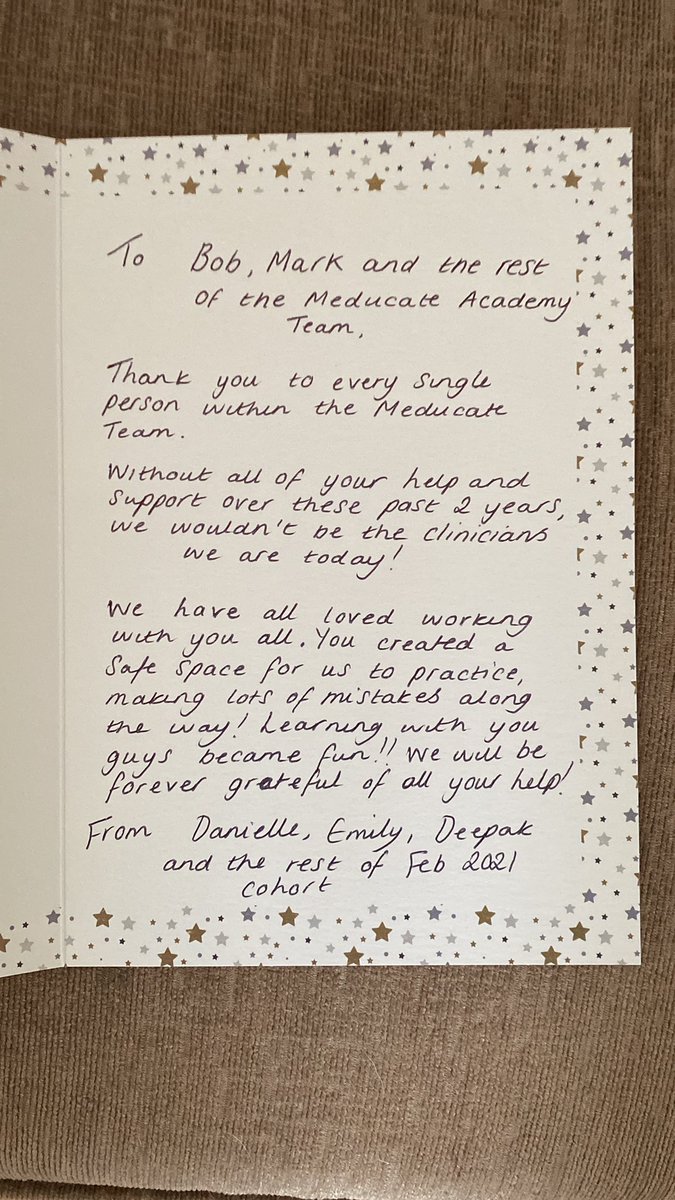 To Bob, Mark and the rest
of the Meducate Academy
Team,
Thank you to every single
person within the Meducate
Team.
Without all of your help and
support over these past 2 years,
we wouldn't be the clinicians
we are today!
We have all loved working
with you all. You created a
safe space for us to practice,
making lots of mistakes along
the way! Learning with you
guys became fun!! We will be
forever grateful of all your help!
From Danielle, Emily, Deepak
and the rest of Feb 2021
cohort